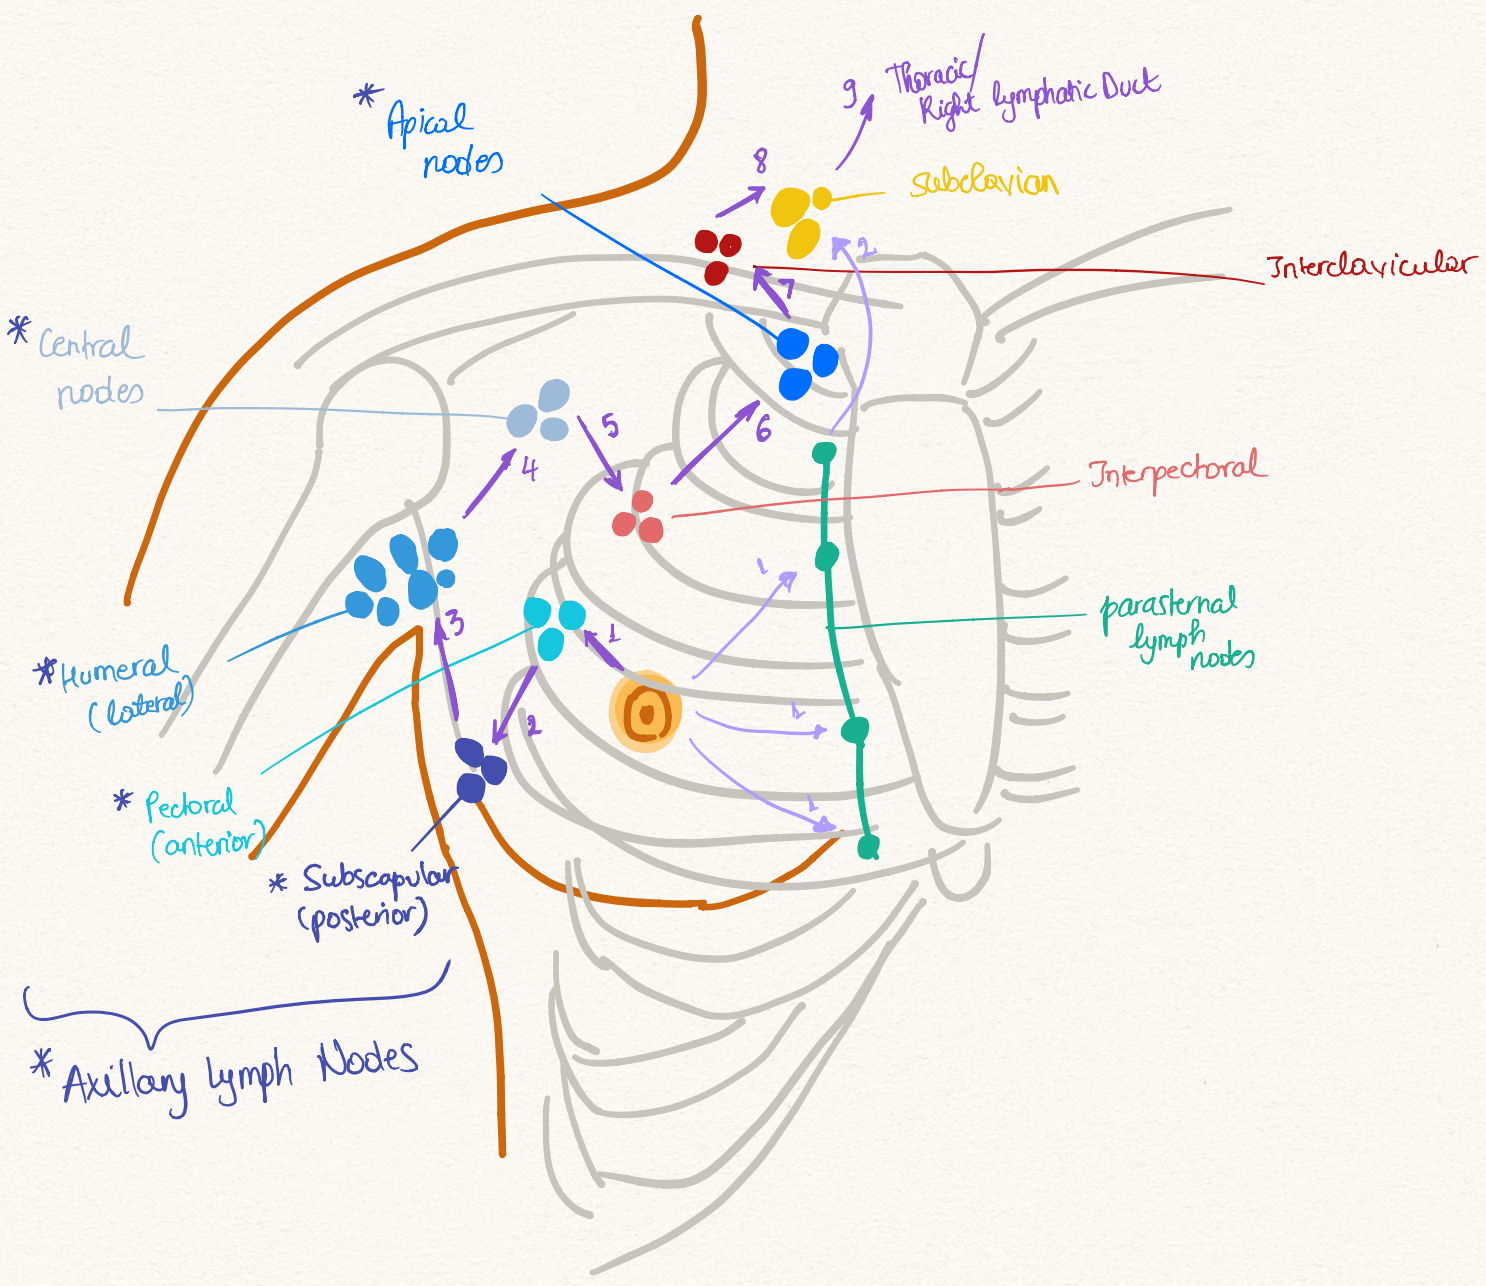 * Apical
nodes
9 Thoracic/
Right Lymphatic Duct
8
subclavian
2
Interclavicular
7
* Central
nodes
5
6
4
Interpectoral
1
3
1
parasternal
lymph
nodes
* Humeral
(lateral)
2
1
* Pectoral
(anterior)
1
* Subscapular
(posterior)
* Axillary Lymph Nodes